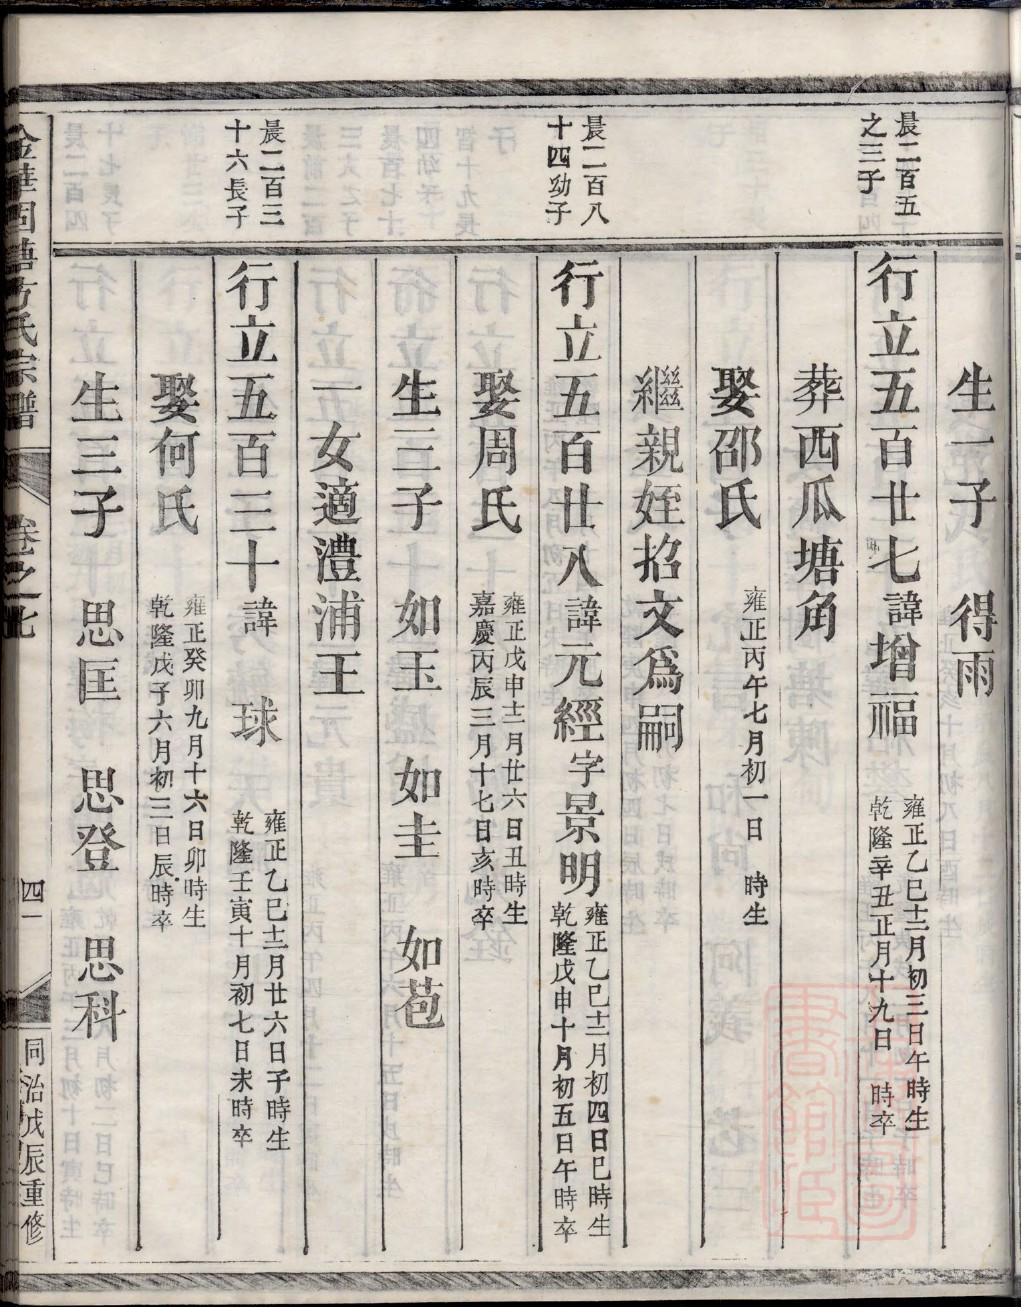 生一子　得雨
晨二百五
之三子
行立五百廿七諱增福
雍正乙巳十二月初三日午時生
乾隆辛丑正月十九日　時卒
葬西瓜塘角
娶邵氏
雍正丙午七月初一日　時生
繼親姪招文爲嗣
晨二百八
十四幼子
行立五百廿八諱元經字景明
雍正乙巳十二月初四日巳時生
乾隆戊申十月初五日午時卒
娶周氏
雍正戊申十二月廿六日丑時生
嘉慶丙辰三月十七日亥時卒
生三子　如玉　如圭　如苞
一女適澧浦王
晨二百三
十六長子
行立五百三十諱　球
雍正乙巳十二月廿六日子時生
乾隆壬寅十月初七日未時卒
娶何氏
雍正癸卯九月十六日卯時生
乾隆戊子六月初三日辰時卒
生三子　思匡　思登　思科
卷之
四一
同治戊辰重修